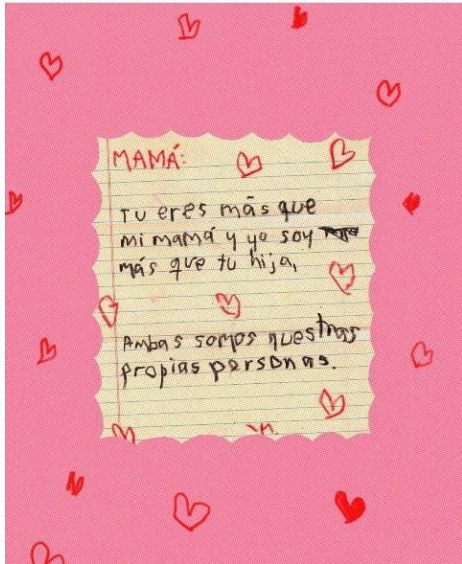 MAMÁ:
Tu eres más que
mi mamá y yo soy
más que tu hija,
Ambas somos nuestras
propias personas.